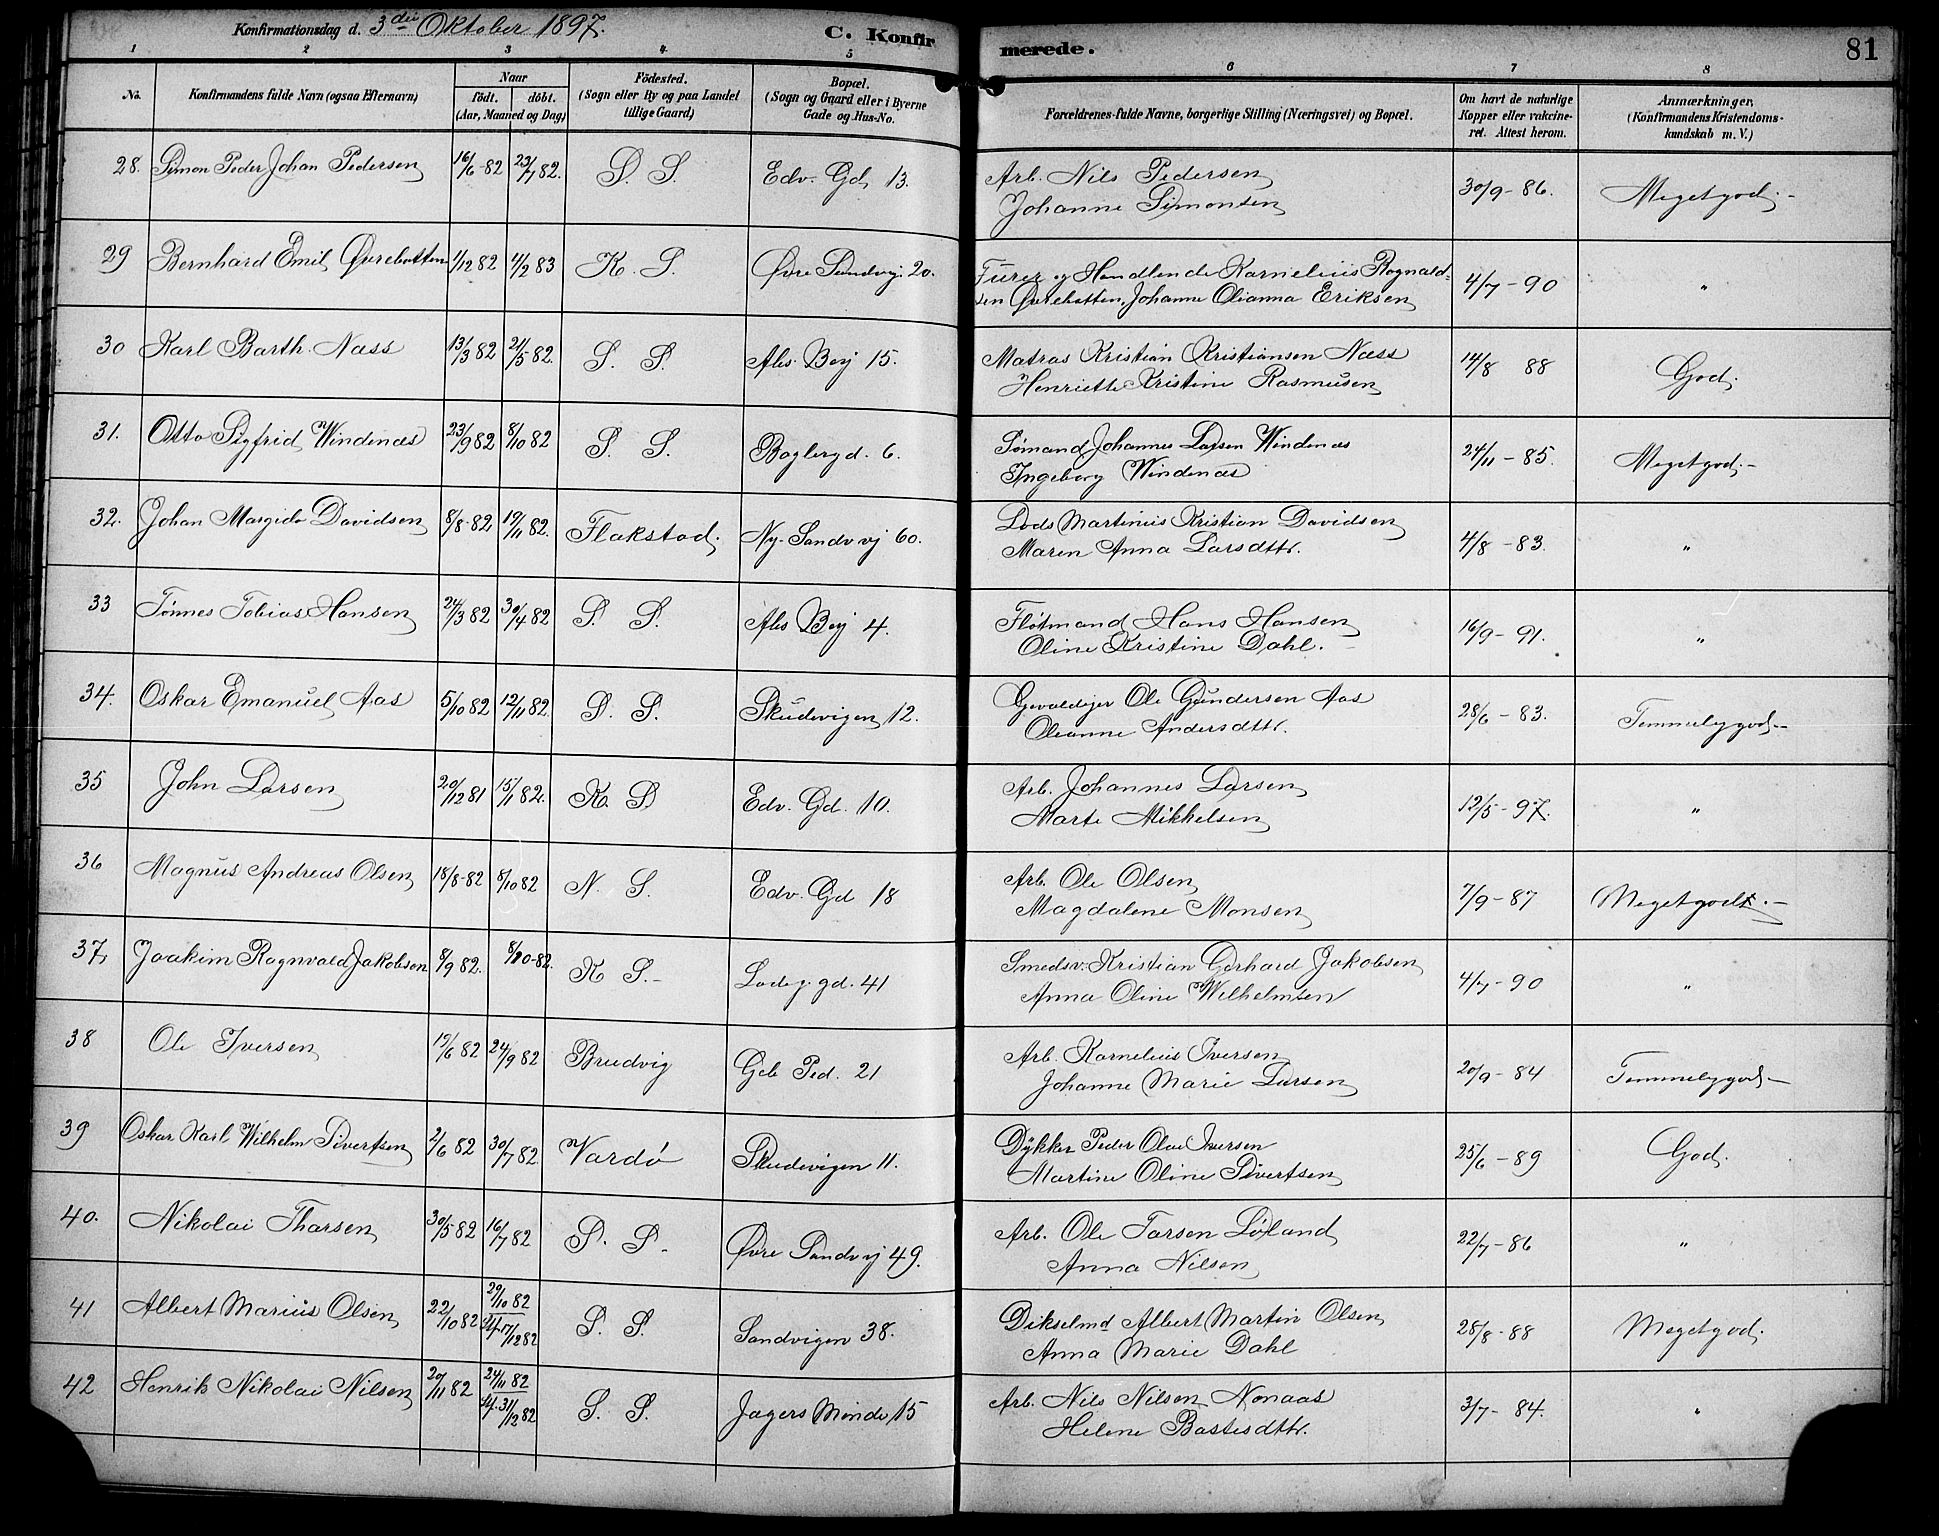 Konfirmationsdag d. 3die Oktober 1897.
C. Konfir
merede.
81
1 2 3 4 5 6 7 8
No. Konfirmandens fulde Navn (ogsaa Efternavn) Naar födt. döbt. (Aar, Maaned og Dag) Födested. (Sogn eller By og paa Landet tillige Gaard) Bopæl. (Sogn og Gaard eller i Byerne Gade og Hus-No. Forældrenes fulde Navne, borgerlige Stilling (Næringsvei) og Bopæl. Om havt de naturlige Kopper eller vakcineret. Attest herom. Anmærkninger, (Konfirmandens Kristendomskundskab m. V.)
28. Simon Peder Johan Pedersen 16/6-82 23/7 82. S. S. Edv. Gd. 13. Arb. Nils Pedersen 30/9-86. Megetgod.-
Johanne Simonsen
29 Bernhard Emil Øvrebotten 1/12 82 4/2 83 K. S. Øvre Sandvj. 20. Furer og Handlende Kornelius Rognald-
sen Øvrebotten, Johanne Olianna Eriksen 4/7-90 "
30 Karl Barth. Næss 13/3 82 21/5 82. S. S. Abs. Bej 15. Matros Kristian Kristiansen Næss 14/8 88 God.
Henriette Kristine Rasmusen
31. Otto Sigfrid Windenæs 23/9 82 8/10 82 S. S. Baglergd. 6. Sømand Johannes Larsen Windenæs 24/11-85. Megetgod.-
Ingeborg Windenæs
32. Johan Margido Davidsen 8/8-82 19/11 82. Flakstad. Ny-Sandvvj 60. Lods Martinius Kristian Davidsen 4/8-83. "
Maren Anna Larsdttr.
33 Tønnes Tobias Hansen 24/3 82 30/4 82 S. S. Abs Bej 4. Fløtmand Hans Hansen 16/9-91. "
Oline Kristine Dahl.
34. Oskar Emanuel Aas 5/10 82 12/11 82. S. S. Skudevigen 12. Gevaldiger Ole Gundersen Aas 28/6-83. Temmelyg god.-
Oleanne Andersdttr.
35 John Larsen 20/12 81 15/1 82. K. S Edv. Gd. 10. Arb. Johannes Larsen 12/5-97. "
Marte Mikkelsen
36 Magnus Andreas Olsen 18/8-82 8/10 82 N. S. Edv. Gd 18 Arb. Ole Olsen 7/9-87 Megetgodt.-
Magdalene Monsen
37, Joakim Ragnvald Jakobsen 8/9 82. 8/10-82. K S.- Ladeg. gd. 41 Smedsv. Kristian Gerhard Jakobsen 4/7-90 "
Anna Oline Wilhelmsen
38 Ole Iversen 19/6 82 24/9 82 Brudvig Geb Ped. 21 Arb. Kornelius Iversen 20/9-84 Temmelyg god-
Johanne Marie Larsen
39 Oskar Karl Wilhelm Sivertsen 2/6 82 30/7 82. Vardø Skudevigen 11. Dykker Peder Olai Iversen 25/6-89 God.
Martine Oline Sivertsen
40. Nikolai Tharsen 30/5 82 16/7 82 S. S. Øvre Sandvj 49. Arb. Ole Tarsen Løland 22/7-86 "
Anna Nilsen
41 Albert Marius Olsen 22/10 82 29/10 82 St. 17/12 82 S. S. Sandvigen 38. Dikselmd Albert Martin Olsen 28/8-88 Megetgod.
Anna Marie Dahl
42 Henrik Nikolai Nilsen 20/11 82 24/11 82 St. 31/12 82 S. S. Jagers Minde 15 Arb. Nils Nilsen Nonaas 3/7-84. "
Helene Bastesdttr.